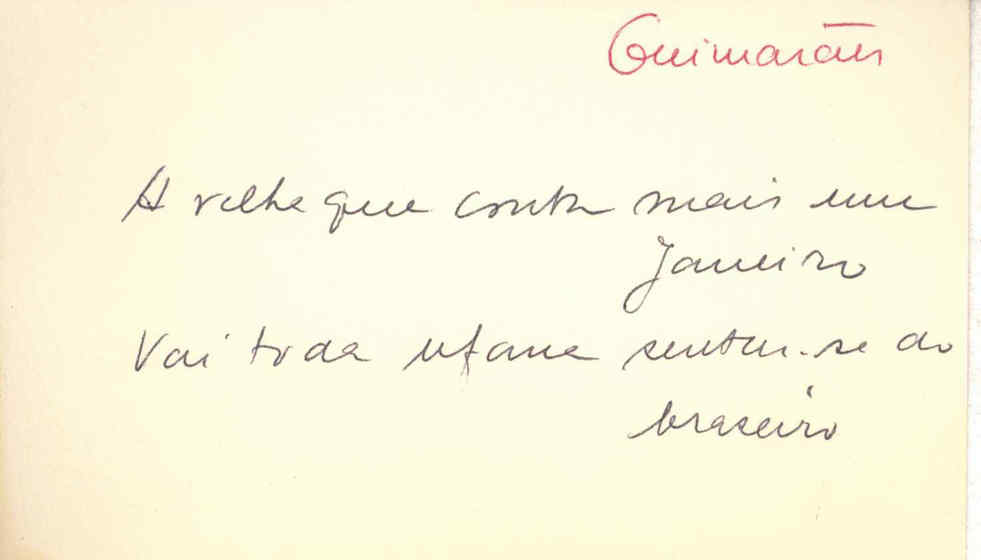 Guimarães
A velha que conta mais um
Janeiro
Vai toda ufana sentar-se ao
braseiro